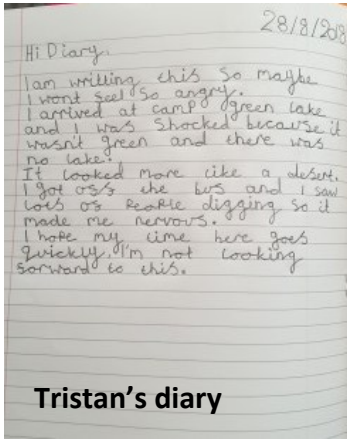 28/8/2018
Hi Diary,
I am writing this so maybe
I wont feel so angry.
I arrived at camp green lake
and I was shocked because it
wasn't green and there was
no lake!
It looked more like a desert.
I got off the bus and I saw
lots of people digging so it
made me nervous.
I hope my time here goes
quickly. I'm not looking
forward to this.
Tristan's diary